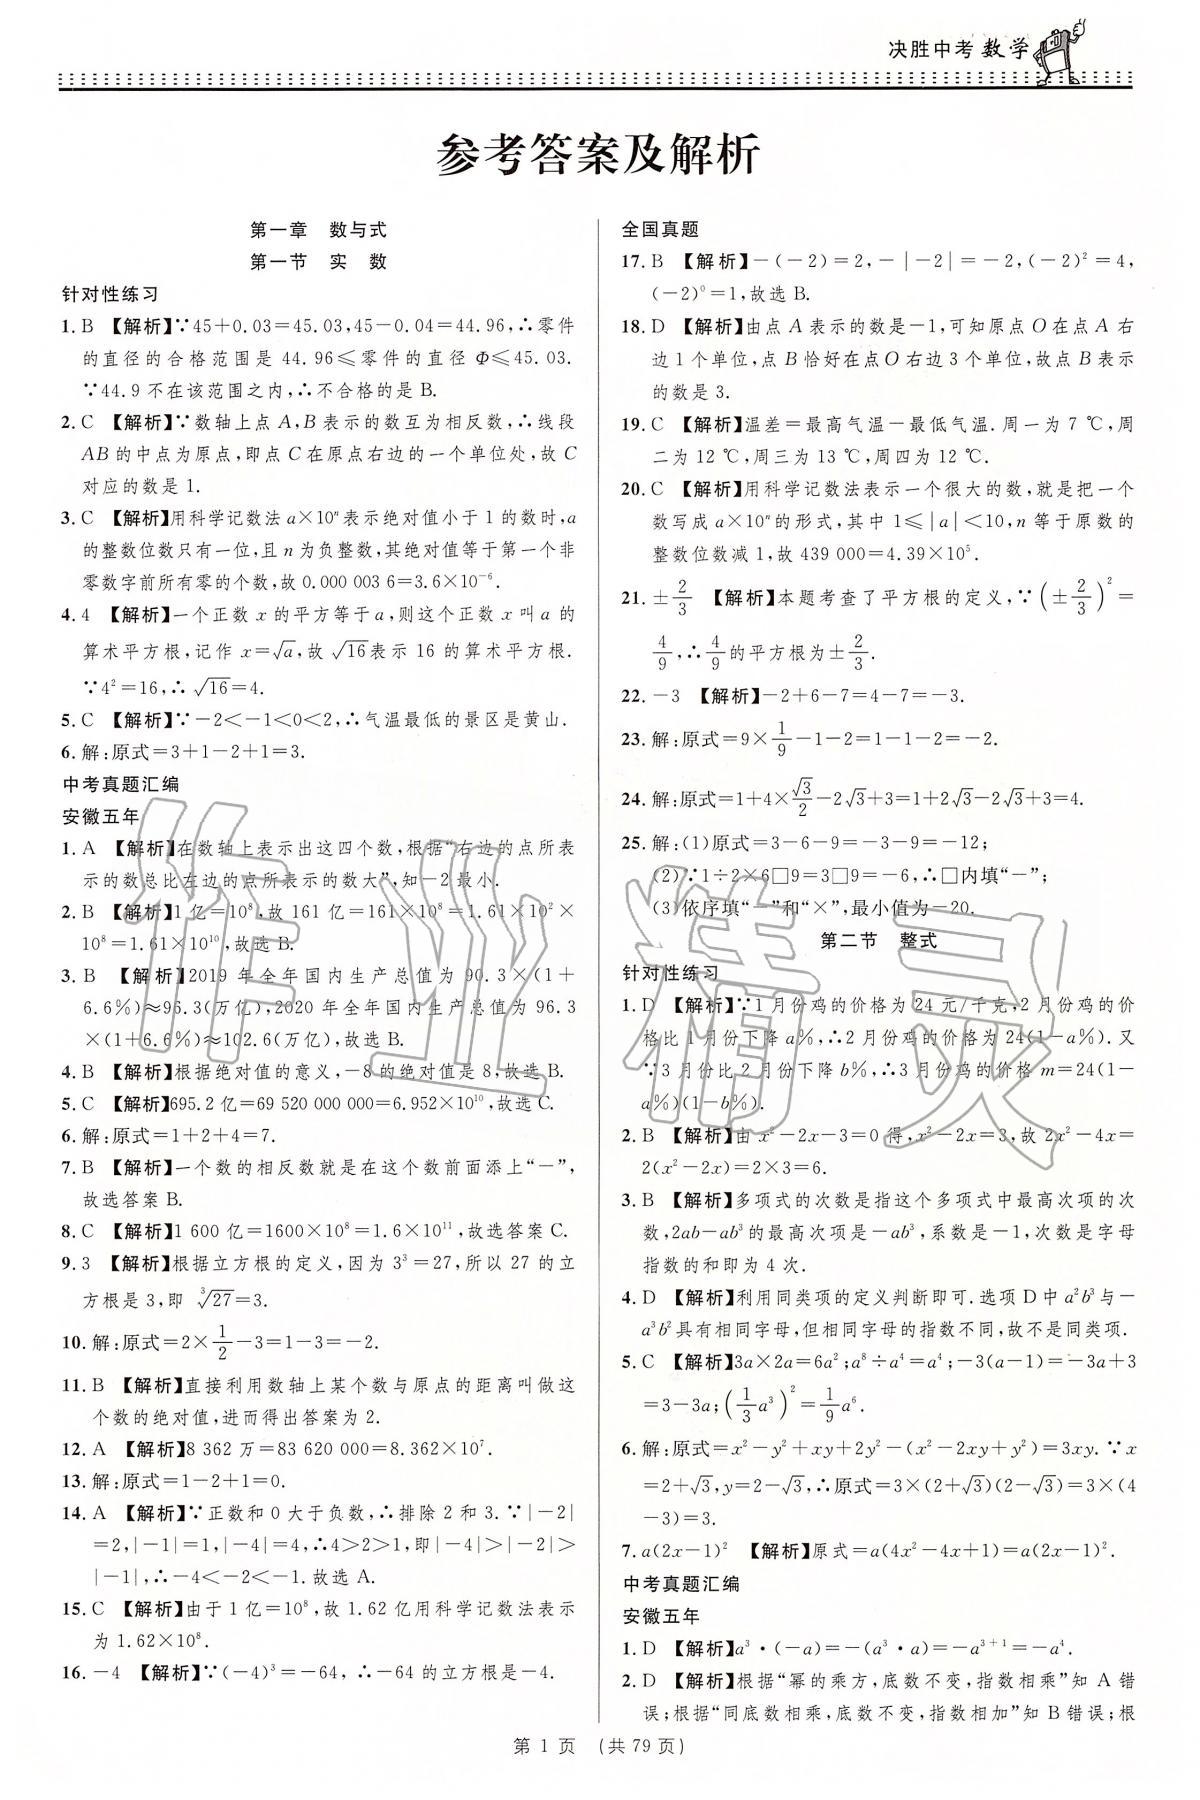 决胜中考 数学
参考答案及解析
第一章 数与式
第一节 实 数
针对性练习
1. B 【解析】∵45+0.03=45.03,45-0.04=44.96,∴零件
的直径的合格范围是 44.96≤零件的直径 Φ≤45.03.
∵44.9 不在该范围之内,∴不合格的是 B.
2. C 【解析】∵数轴上点 A,B 表示的数互为相反数,∴线段
AB 的中点为原点,即点 C 在原点右边的一个单位处,故 C
对应的数是 1.
3. C 【解析】用科学记数法 a×10ⁿ 表示绝对值小于 1 的数时,a
的整数位数只有一位,且 n 为负整数,其绝对值等于第一个非
零数字前所有零的个数,故 0.000 003 6=3.6×10⁻⁶.
4. 4 【解析】一个正数 x 的平方等于 a,则这个正数 x 叫 a 的
算术平方根,记作 x=√a,故 √16 表示 16 的算术平方根.
∵4²=16,∴√16=4.
5. C 【解析】∵-2<-1<0<2,∴气温最低的景区是黄山.
6. 解:原式=3+1-2+1=3.
中考真题汇编
安徽五年
1. A 【解析】在数轴上表示出这四个数,根据“右边的点所表
示的数总比左边的点所表示的数大”,知-2 最小.
2. B 【解析】1 亿=10⁸,故 161 亿=161×10⁸=1.61×10²×
10⁸=1.61×10¹⁰,故选 B.
3. B 【解析】2019 年全年国内生产总值为 90.3×(1+
6.6%)≈96.3(万亿),2020 年全年国内生产总值为 96.3
×(1+6.6%)≈102.6(万亿),故选 B.
4. B 【解析】根据绝对值的意义,-8 的绝对值是 8,故选 B.
5. C 【解析】695.2 亿=69 520 000 000=6.952×10¹⁰,故选 C.
6. 解:原式=1+2+4=7.
7. B 【解析】一个数的相反数就是在这个数前面添上“-”,
故选答案 B.
8. C 【解析】1 600 亿=1600×10⁸=1.6×10¹¹,故选答案 C.
9. 3 【解析】根据立方根的定义,因为 3³=27,所以 27 的立
方根是 3,即 ∛27=3.
10. 解:原式=2×1/2-3=1-3=-2.
11. B 【解析】直接利用数轴上某个数与原点的距离叫做这
个数的绝对值,进而得出答案为 2.
12. A 【解析】8 362 万=83 620 000=8.362×10⁷.
13. 解:原式=1-2+1=0.
14. A 【解析】∵正数和 0 大于负数,∴排除 2 和 3.∵|-2|
=2,|-1|=1,|-4|=4,∴4>2>1,即|-4|>|-2|>
|-1|,∴-4<-2<-1.故选 A.
15. C 【解析】由于 1 亿=10⁸,故 1.62 亿用科学记数法表示
为 1.62×10⁸.
16. -4 【解析】∵(-4)³=-64, ∴-64 的立方根是-4.
全国真题
17. B 【解析】-(-2)=2,-|-2|=-2,(-2)²=4,
(-2)⁰=1,故选 B.
18. D 【解析】由点 A 表示的数是-1,可知原点 O 在点 A 右
边 1 个单位,点 B 恰好在点 O 右边 3 个单位,故点 B 表示
的数是 3.
19. C 【解析】温差=最高气温-最低气温.周一为 7 ℃,周
二为 12 ℃,周三为 13 ℃,周四为 12 ℃.
20. C 【解析】用科学记数法表示一个很大的数,就是把一个
数写成 a×10ⁿ 的形式,其中 1≤|a|<10,n 等于原数的
整数位数减 1,故 439 000=4.39×10⁵.
21. ±2/3 【解析】本题考查了平方根的定义,∵(±2/3)²=
4/9,∴4/9 的平方根为±2/3.
22. -3 【解析】-2+6-7=4-7=-3.
23. 解:原式=9×1/9-1-2=1-1-2=-2.
24. 解:原式=1+4×√3/2-2√3+3=1+2√3-2√3+3=4.
25. 解:(1)原式=3-6-9=-3-9=-12;
(2)∵1÷2×6□9=3□9=-6,∴□内填“-”;
(3)依序填“-”和“×”,最小值为-20.
第二节 整式
针对性练习
1. D 【解析】∵1 月份鸡的价格为 24 元/千克,2 月份鸡的价
格比 1 月份下降 a%,∴2 月份鸡的价格为 24(1-a%).又
∵3 月份比 2 月份下降 b%,∴3 月份鸡的价格 m=24(1-
a%)(1-b%).
2. B 【解析】由 x²-2x-3=0 得,x²-2x=3,故 2x²-4x=
2(x²-2x)=2×3=6.
3. B 【解析】多项式的次数是指这个多项式中最高次项的次
数,2ab-ab³ 的最高次项是-ab³,系数是-1,次数是字母
指数的和即为 4 次.
4. D 【解析】利用同类项的定义判断即可.选项 D 中 a²b³ 与-
a³b² 具有相同字母,但相同字母的指数不同,故不是同类项.
5. C 【解析】3a×2a=6a²;a⁸÷a⁴=a⁴;-3(a-1)=-3a+3
=3-3a;(1/3a³)²=1/9a⁶.
6. 解:原式=x²-y²+xy+2y²-(x²-2xy+y²)=3xy.∵x
=2+√3,y=2-√3,∴原式=3×(2+√3)(2-√3)=3×(4
-3)=3.
7. a(2x-1)² 【解析】原式=a(4x²-4x+1)=a(2x-1)².
中考真题汇编
安徽五年
1. D 【解析】a³·(-a)=-(a³·a)=-a³⁺¹=-a⁴.
2. D 【解析】根据“幂的乘方,底数不变,指数相乘”知 A 错
误;根据“同底数相乘,底数不变,指数相加”知 B 错误;根
第 1 页 (共 79 页)
作业精灵